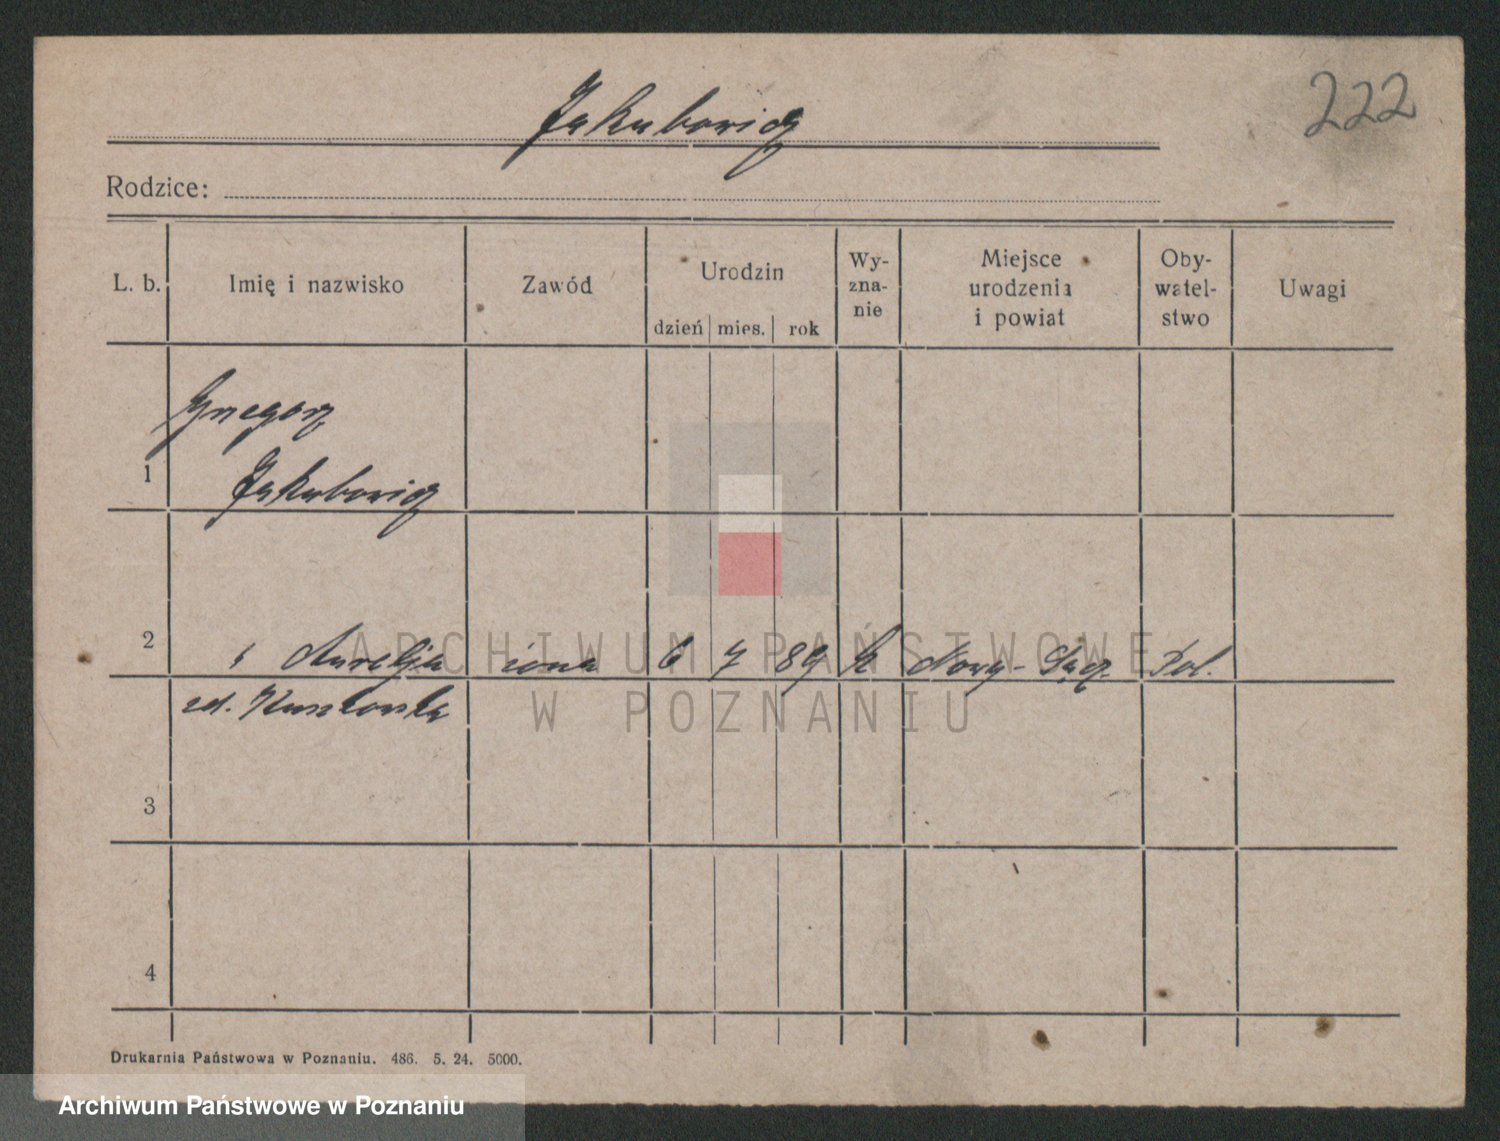 222
Jakubowicz
Rodzice:
L. b. Imię i nazwisko Zawód Urodzin dzień mies. rok Wy-zna-nie Miejsce urodzenia i powiat Oby-watel-stwo Uwagi
Grzegorz
1 Jakubowicz
2 Aurelja żona 6 7 89 k Nowy-Sącz Pol.
zd.
3
4
ARCHIWUM PAŃSTWOWE
W POZNANIU
Drukarnia Państwowa w Poznaniu. 486. 5. 24. 5000.
Archiwum Państwowe w Poznaniu